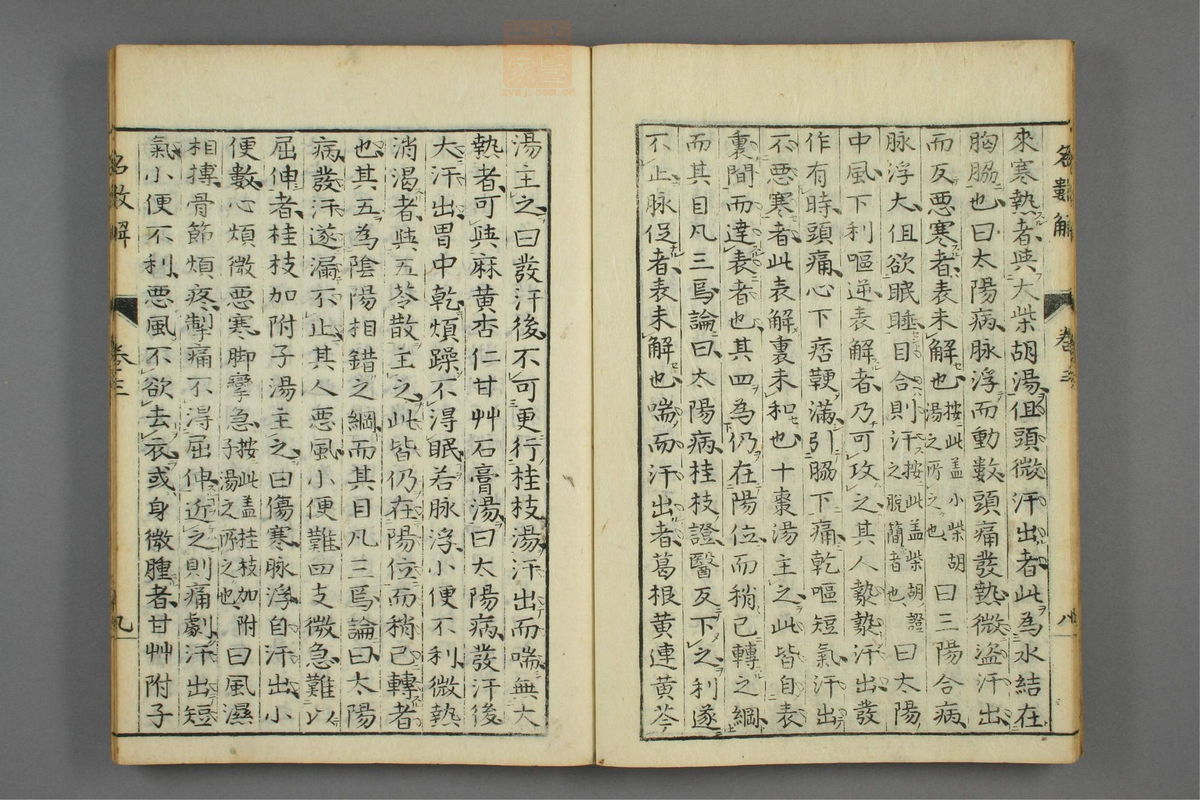 名數解 卷三 八
來寒熱者與大柴胡湯但頭微汗出者此為水結在
胸脇也曰太陽病脉浮而動數頭痛發熱微盜汗出
而反悪寒者表未解也按此盖小柴胡湯之所之也曰三陽合病
脉浮大但欲眠睡目合則汗按此盖柴胡證之脫簡者也曰太陽
中風下利嘔逆表解者乃可攻之其人漐漐汗出發
作有時頭痛心下痞鞕滿引脇下痛乾嘔短氣汗出
不悪寒者此表解裏未和也十棗湯主之此皆自表
裏間而達表者也其四為仍在陽位而稍已轉之綱
而其目凡三焉論曰太陽病桂枝證醫反下之利遂
不止脉促者表未解也喘而汗出者葛根黃連黃芩
湯主之曰發汗後不可更行桂枝湯汗出而喘無大
熱者可與麻黃杏仁甘艸石膏湯曰太陽病發汗後
大汗出胃中乾煩躁不得眠若脉浮小便不利微熱
消渴者與五苓散主之此皆仍在陽位而稍已轉者
也其五為陰陽相錯之綱而其目凡三焉論曰太陽
病發汗遂漏不止其人悪風小便難四支微急難以
屈伸者桂枝加附子湯主之曰傷寒脉浮自汗出小
便數心煩微悪寒脚攣急按此盖桂枝加附子湯之所之也曰風濕
相摶骨節煩疼掣痛不得屈伸近之則痛劇汗出短
氣小便不利悪風不欲去衣或身微腫者甘艸附子
名數解 卷三 九